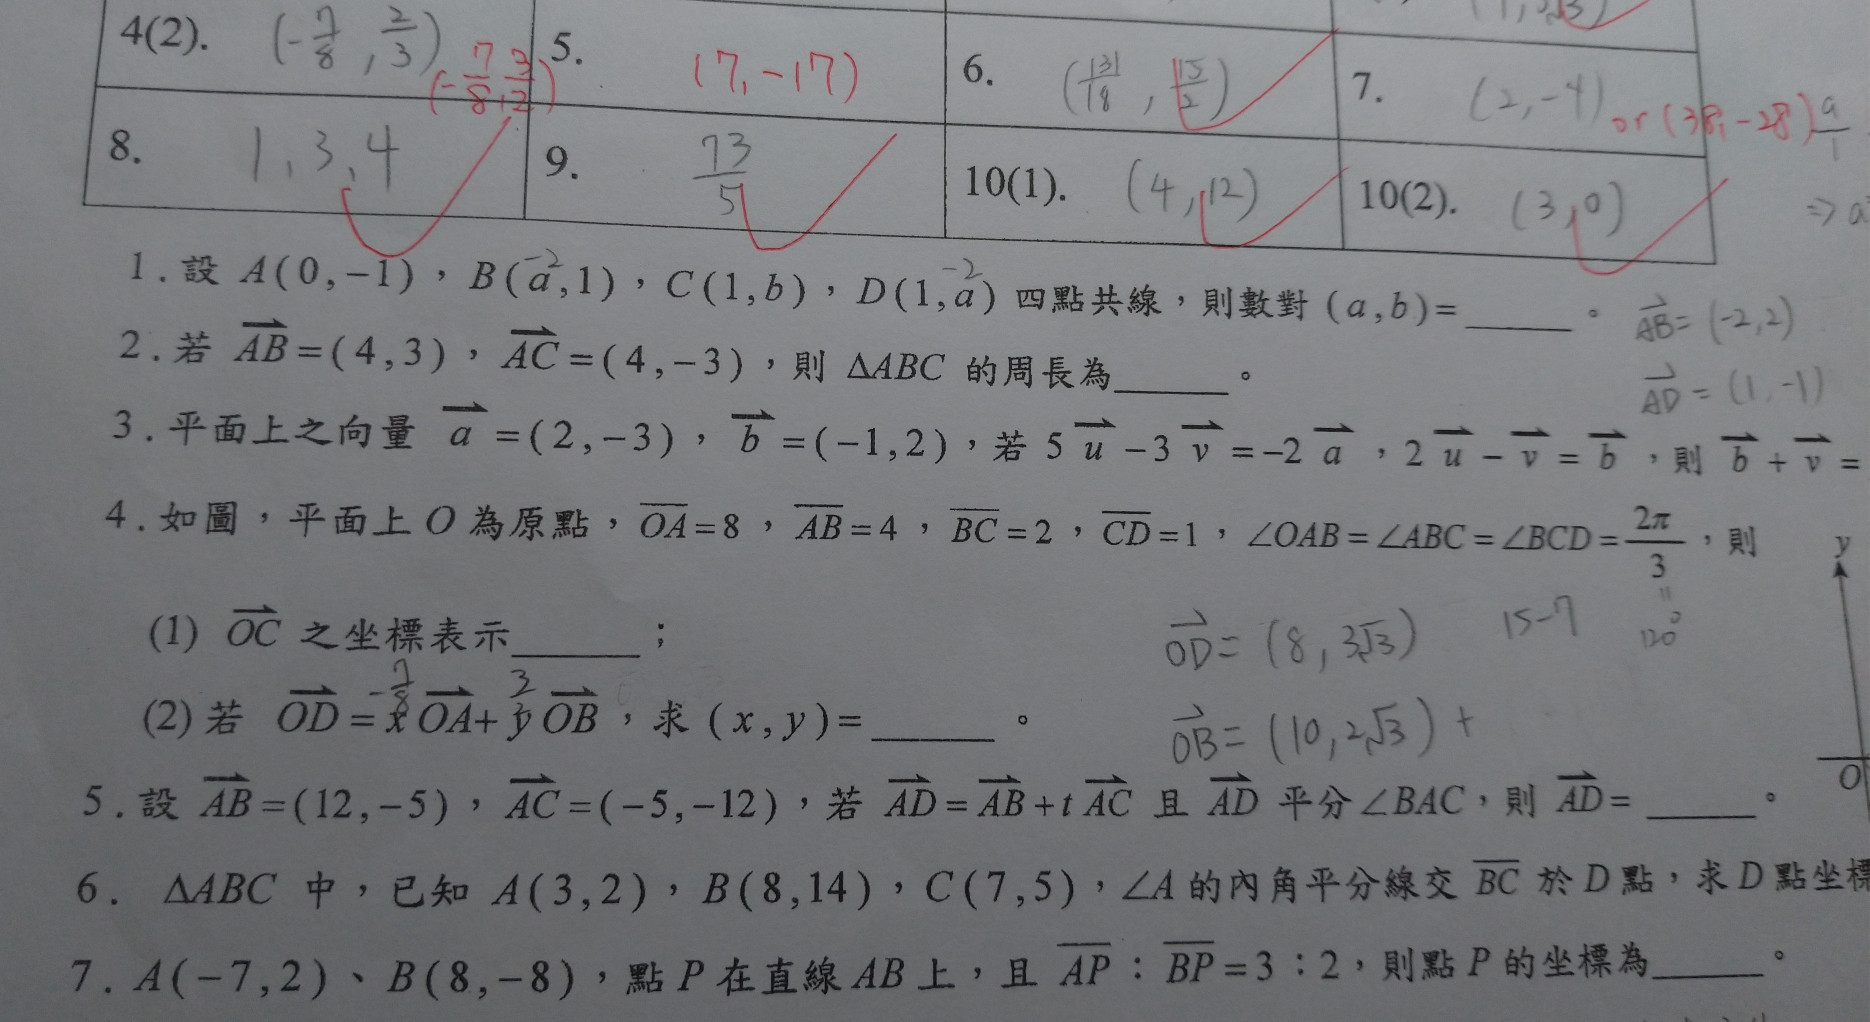 4(2). (-7/8, 2/3) (-7/8, 3/2) 5. (7, -17) 6. (131/18, 15/2) 7. (2, -4) or (38, -28)
8. 1, 3, 4 9. 73/5 10(1). (4, 12) 10(2). (3, 0)
1. 設 A(0,-1)，B(a,1)，C(1,b)，D(1,a) 四點共線，則數對 (a,b)=______。
-2 -2
AB = (-2, 2)
2. 若 AB=(4,3)，AC=(4,-3)，則 ΔABC 的周長為______。
AD = (1, -1)
3. 平面上之向量 a=(2,-3)，b=(-1,2)，若 5u-3v=-2a，2u-v=b，則 b+v=
4. 如圖，平面上 O 為原點，OA=8，AB=4，BC=2，CD=1，∠OAB=∠ABC=∠BCD=2π/3，則
y
(1) OC 之坐標表示______；
OD = (8, 3√3) 15-7 120°
(2) 若 OD=xOA+yOB，求 (x,y)=______。
-7/8 3
OB = (10, 2√3) +
O
5. 設 AB=(12,-5)，AC=(-5,-12)，若 AD=AB+tAC 且 AD 平分∠BAC，則 AD=______。
6. ΔABC 中，已知 A(3,2)，B(8,14)，C(7,5)，∠A 的內角平分線交 BC 於 D 點，求 D 點坐標
7. A(-7,2)、B(8,-8)，點 P 在直線 AB 上，且 AP：BP=3：2，則點 P 的坐標為______。